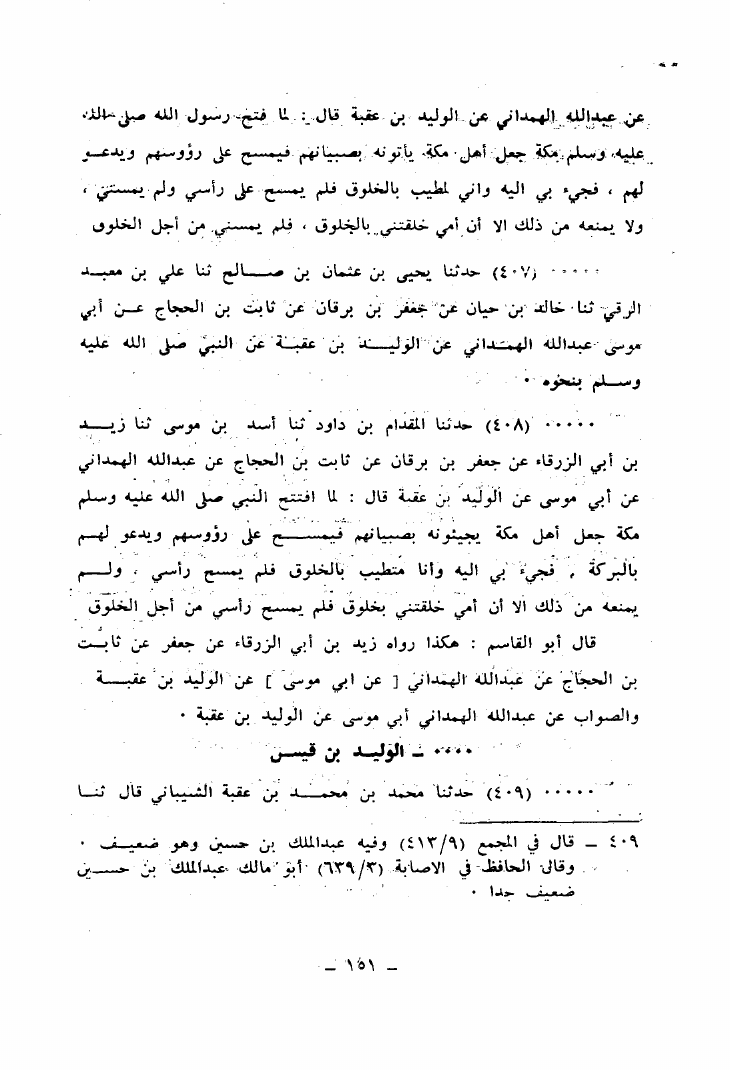 عن عبدالله الهمداني عن الوليد بن عقبة قال : لما فتح رسول الله صلى الله
عليه وسلم مكة جعل أهل مكة يأتونه بصبيانهم فيمسح على رؤوسهم ويدعو
لهم ، فجيء بي اليه واني لمطيب بالخلوق فلم يمسح على رأسي ولم يمسني ،
ولا يمنعه من ذلك الا أن أمي خلقتني بالخلوق ، فلم يمسني من أجل الخلوق
٠٠٠٠٠ (٤٠٧) حدثنا يحيى بن عثمان بن صالح ثنا علي بن معبد
الرقي ثنا خالد بن حيان عن جعفر بن برقان عن ثابت بن الحجاج عن أبي
موسى عبدالله الهمداني عن الوليد بن عقبة عن النبي صلى الله عليه
وسلم بنحوه ٠
٠٠٠٠٠ (٤٠٨) حدثنا المقدام بن داود ثنا أسد بن موسى ثنا زيد
بن أبي الزرقاء عن جعفر بن برقان عن ثابت بن الحجاج عن عبدالله الهمداني
عن أبي موسى عن الوليد بن عقبة قال : لما افتتح النبي صلى الله عليه وسلم
مكة جعل أهل مكة يجيئونه بصبيانهم فيمسح على رؤوسهم ويدعو لهم
بالبركة ، فجيء بي اليه وأنا متطيب بالخلوق فلم يمسح رأسي ، ولم
يمنعه من ذلك الا أن أمي خلقتني بخلوق فلم يمسح رأسي من أجل الخلوق
قال أبو القاسم : هكذا رواه زيد بن أبي الزرقاء عن جعفر عن ثابت
بن الحجاج عن عبدالله الهمداني [ عن ابي موسى ] عن الوليد بن عقبة
والصواب عن عبدالله الهمداني أبي موسى عن الوليد بن عقبة ٠
٠٠٠٠ ـ الوليد بن قيس
٠٠٠٠٠ (٤٠٩) حدثنا محمد بن محمد بن عقبة الشيباني قال ثنا
٤٠٩ ـ قال في المجمع (٤١٣/٩) وفيه عبدالملك بن حسين وهو ضعيف ٠
وقال الحافظ في الاصابة (٦٣٩/٣) أبو مالك عبدالملك بن حسين
ضعيف جدا ٠
ـ ١٥١ ـ